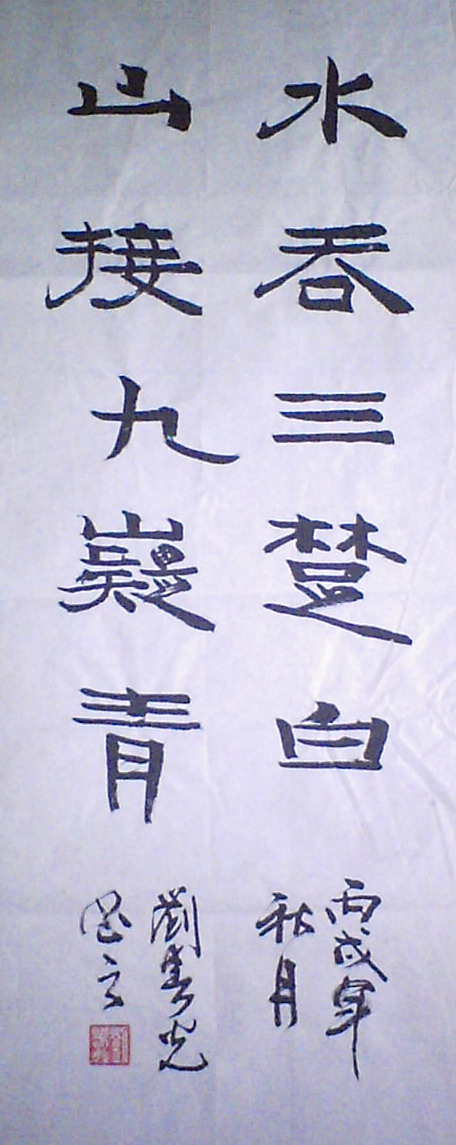 水吞三楚白
山接九嶷青
丙戌年
秋月
劉春光